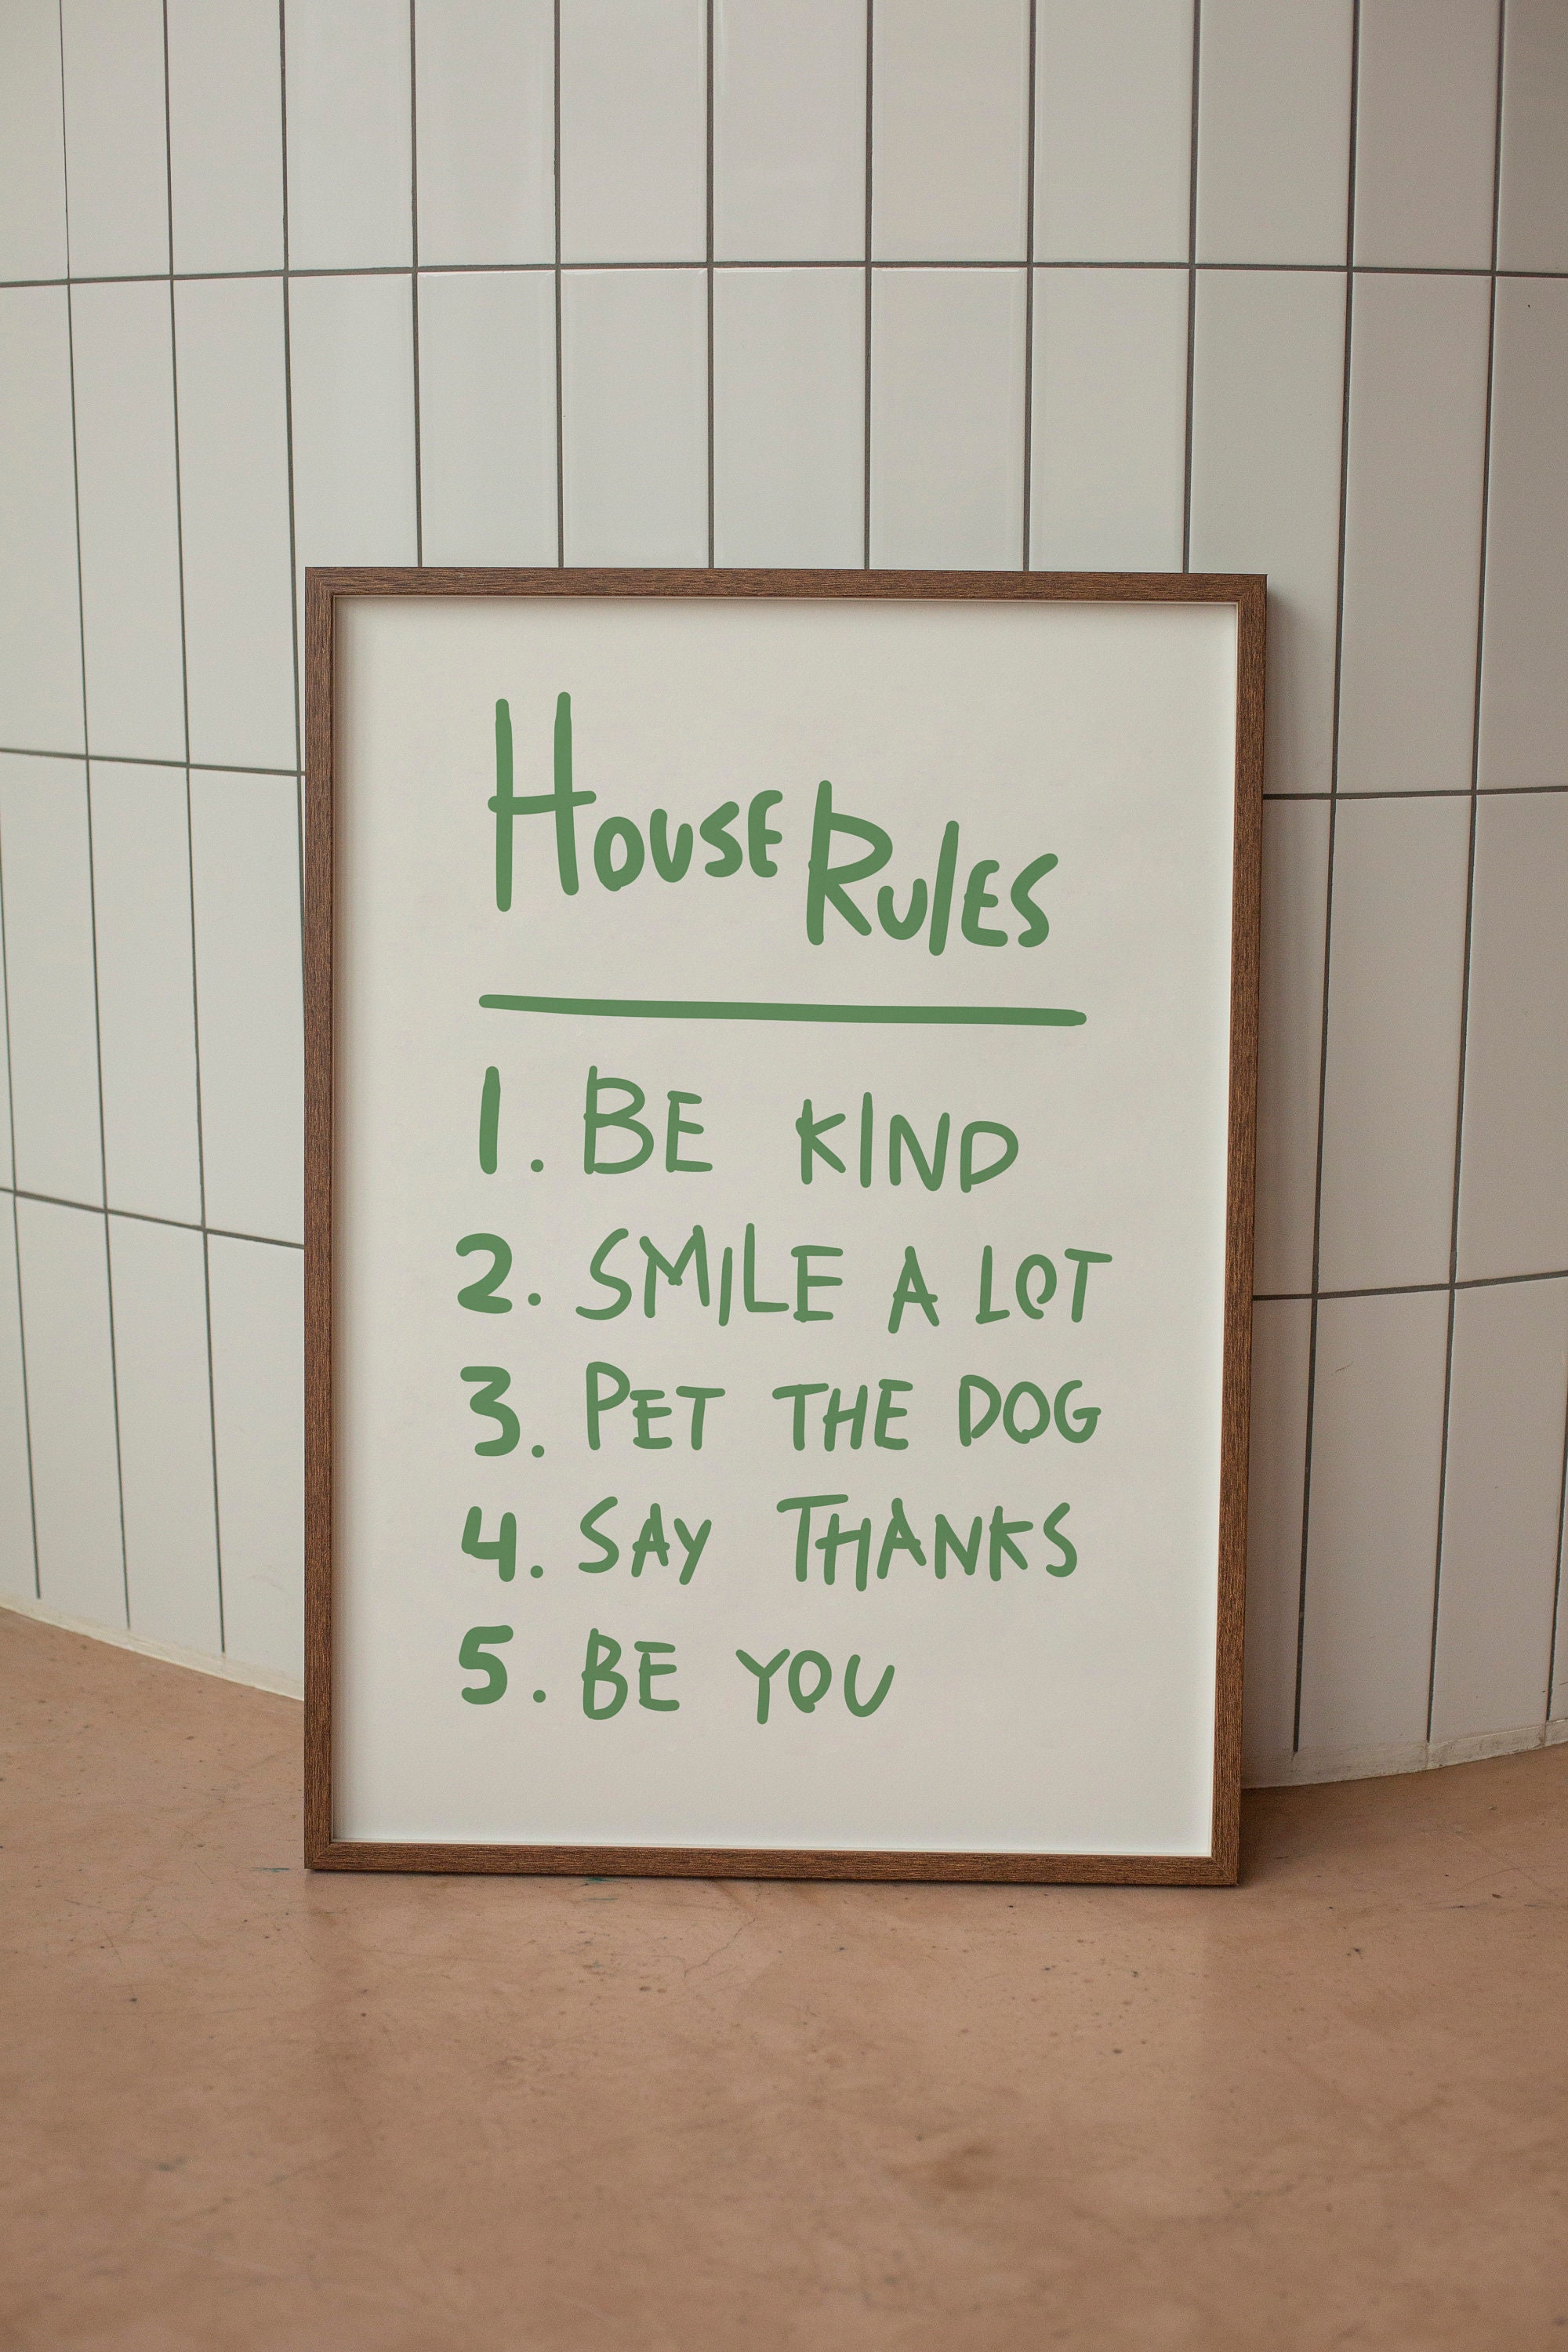 House Rules
1. BE KIND
2. SMILE A LOT
3. PET THE DOG
4. SAY THANKS
5. BE YOU